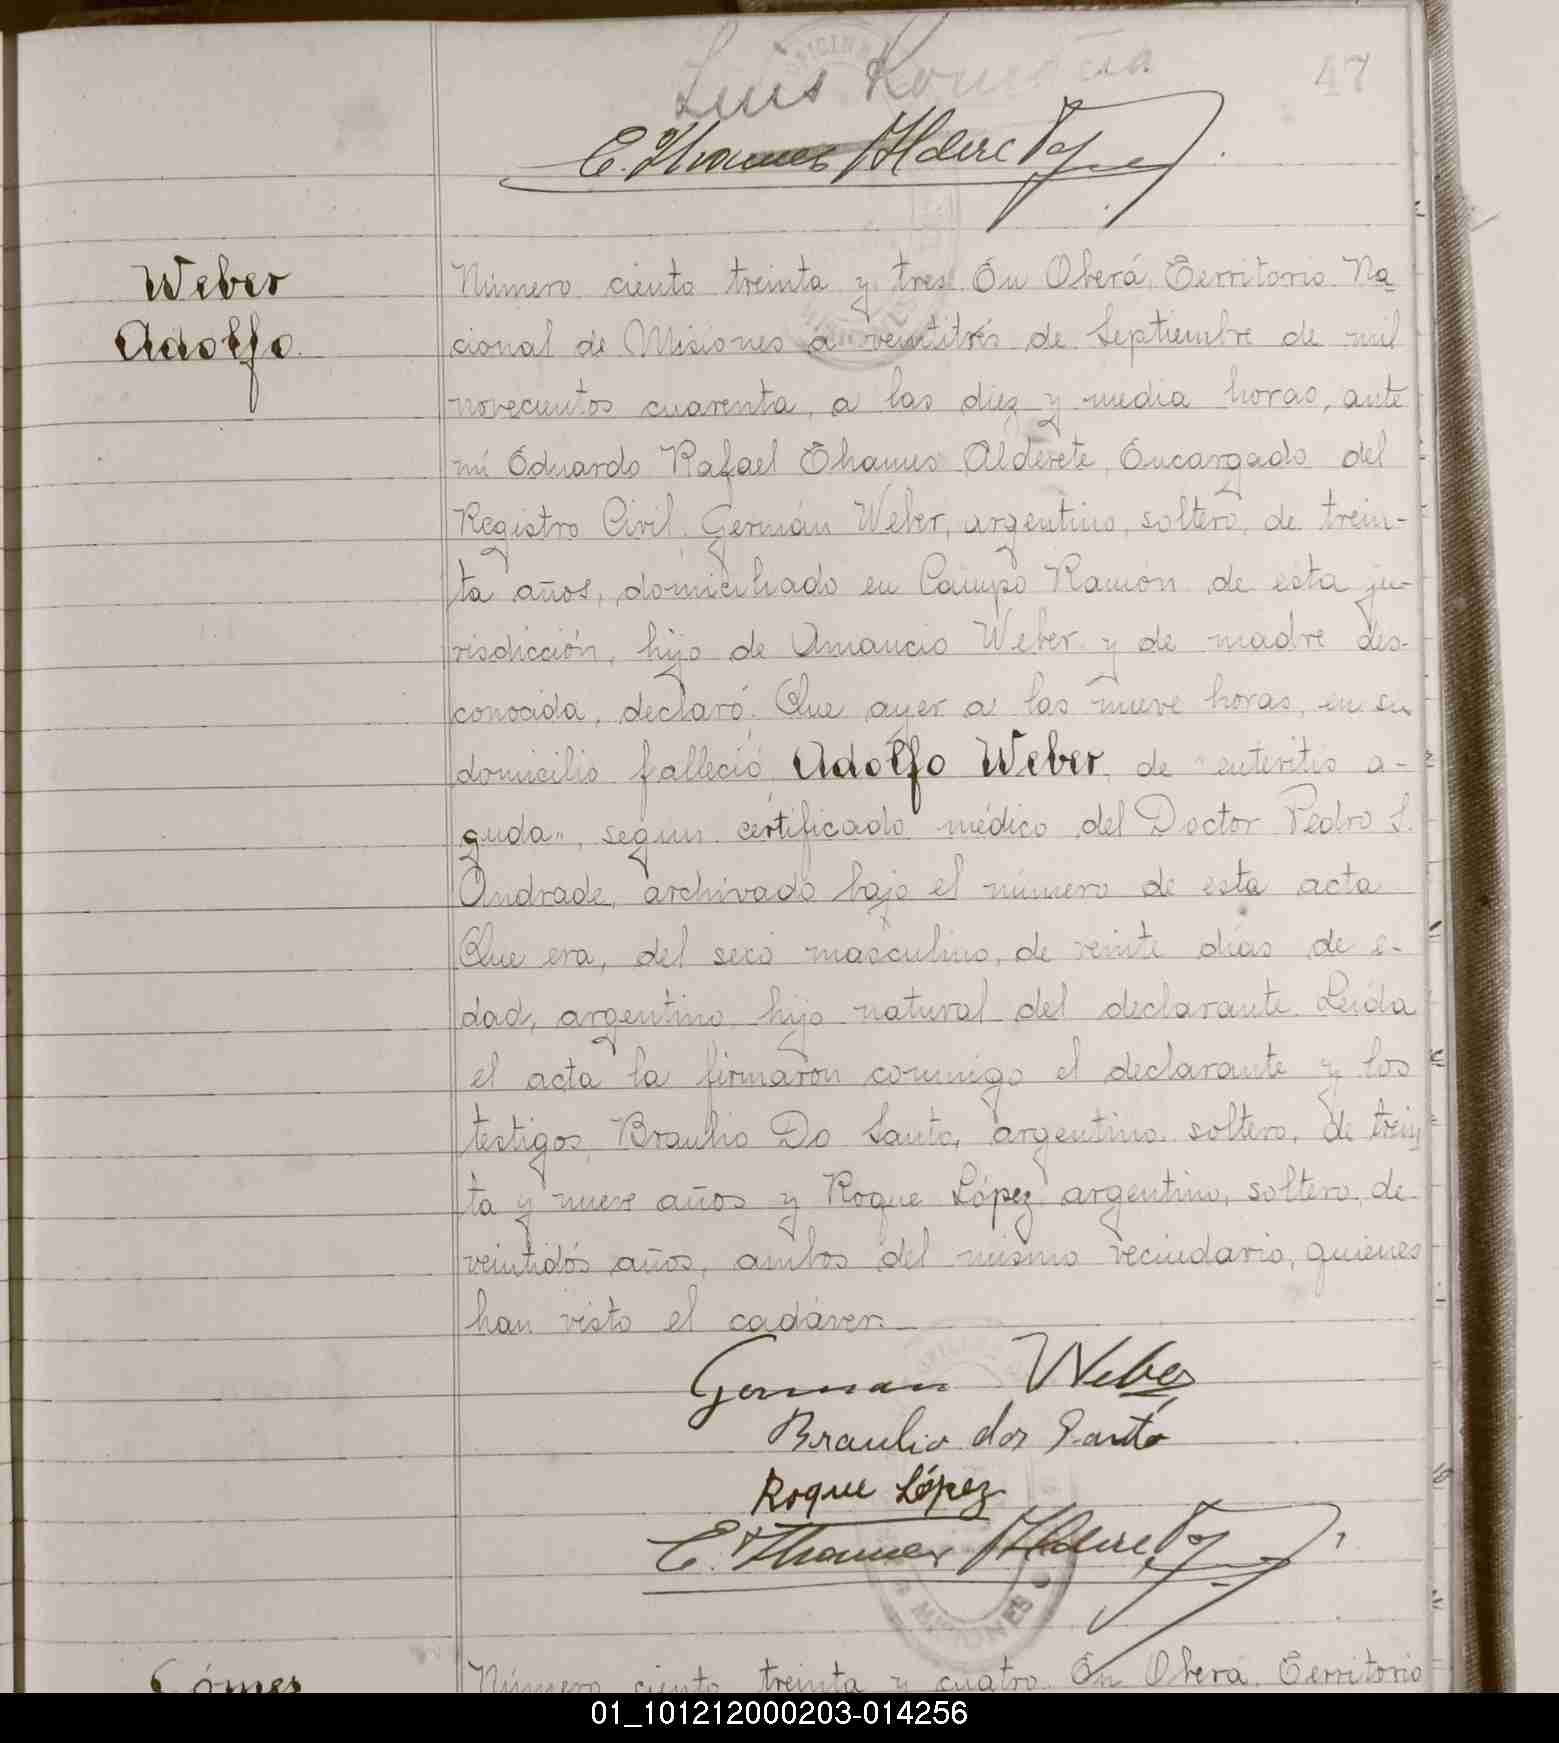 Luis
47
E. Thamus Alderete
Weber
Adolfo.
Número ciento treinta y tres. En Oberá, Territorio Na
cional de Misiones a veintitrés de Septiembre de mil
novecientos cuarenta, a las diez y media horas, ante
mí Eduardo Rafael Thamus Alderete, Encargado del
Registro Civil, Germán Weber, argentino, soltero, de trein-
ta años, domiciliado en Campo Ramón de esta ju-
risdicción, hijo de Amancio Weber y de madre des-
conocida, declaró: Que ayer a las nueve horas, en su
domicilio falleció, Adolfo Weber, de "enteritis a-
guda", según certificado médico del Doctor Pedro S.
Andrade, archivado bajo el número de esta acta.
Que era, del sexo masculino, de veinte días de e-
dad, argentino, hijo natural del declarante. Leída
el acta la firmaron conmigo el declarante y los
testigos, Braulio Do Santo, argentino, soltero, de trein
ta y nueve años y Roque López argentino, soltero, de
veintidós años, ambos del mismo vecindario, quienes
han visto el cadáver.
German Weber
Braulio dos Santo
Roque López
E. Thamus Alderete
MISIONES
Gómez
Número ciento treinta y cuatro. En Oberá, Territorio
01_101212000203-014256